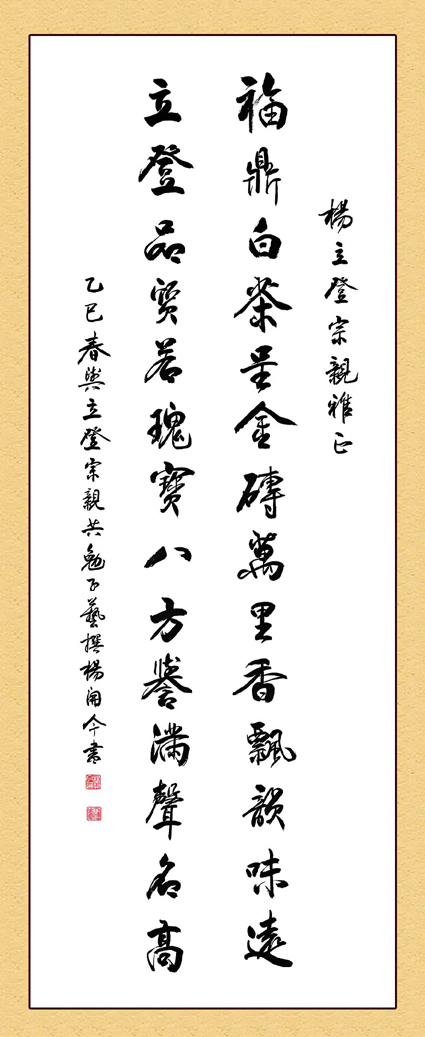 楊立登宗親雅正
福鼎白茶呈金磚萬里香飄韻味遠
立登品質若瑰寶八方譽滿聲名高
乙巳春與立登宗親共勉子藝撰楊開今書